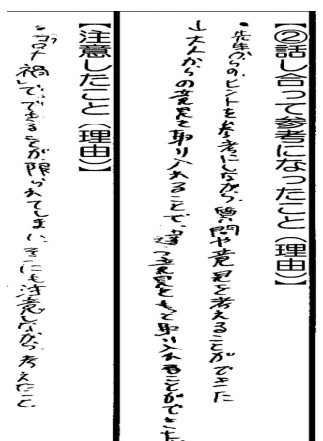 【②話し合って参考になったこと（理由）】
・先生からのヒントを参考にしながら、質問や意見を考えることができた
↓大人からの意見を取り入れることで、違う意見をもっと取り入れることができた。
【注意したこと（理由）】
・コロナ禍で、できることが限られてしまい、そこにも注意しながら考えたこと